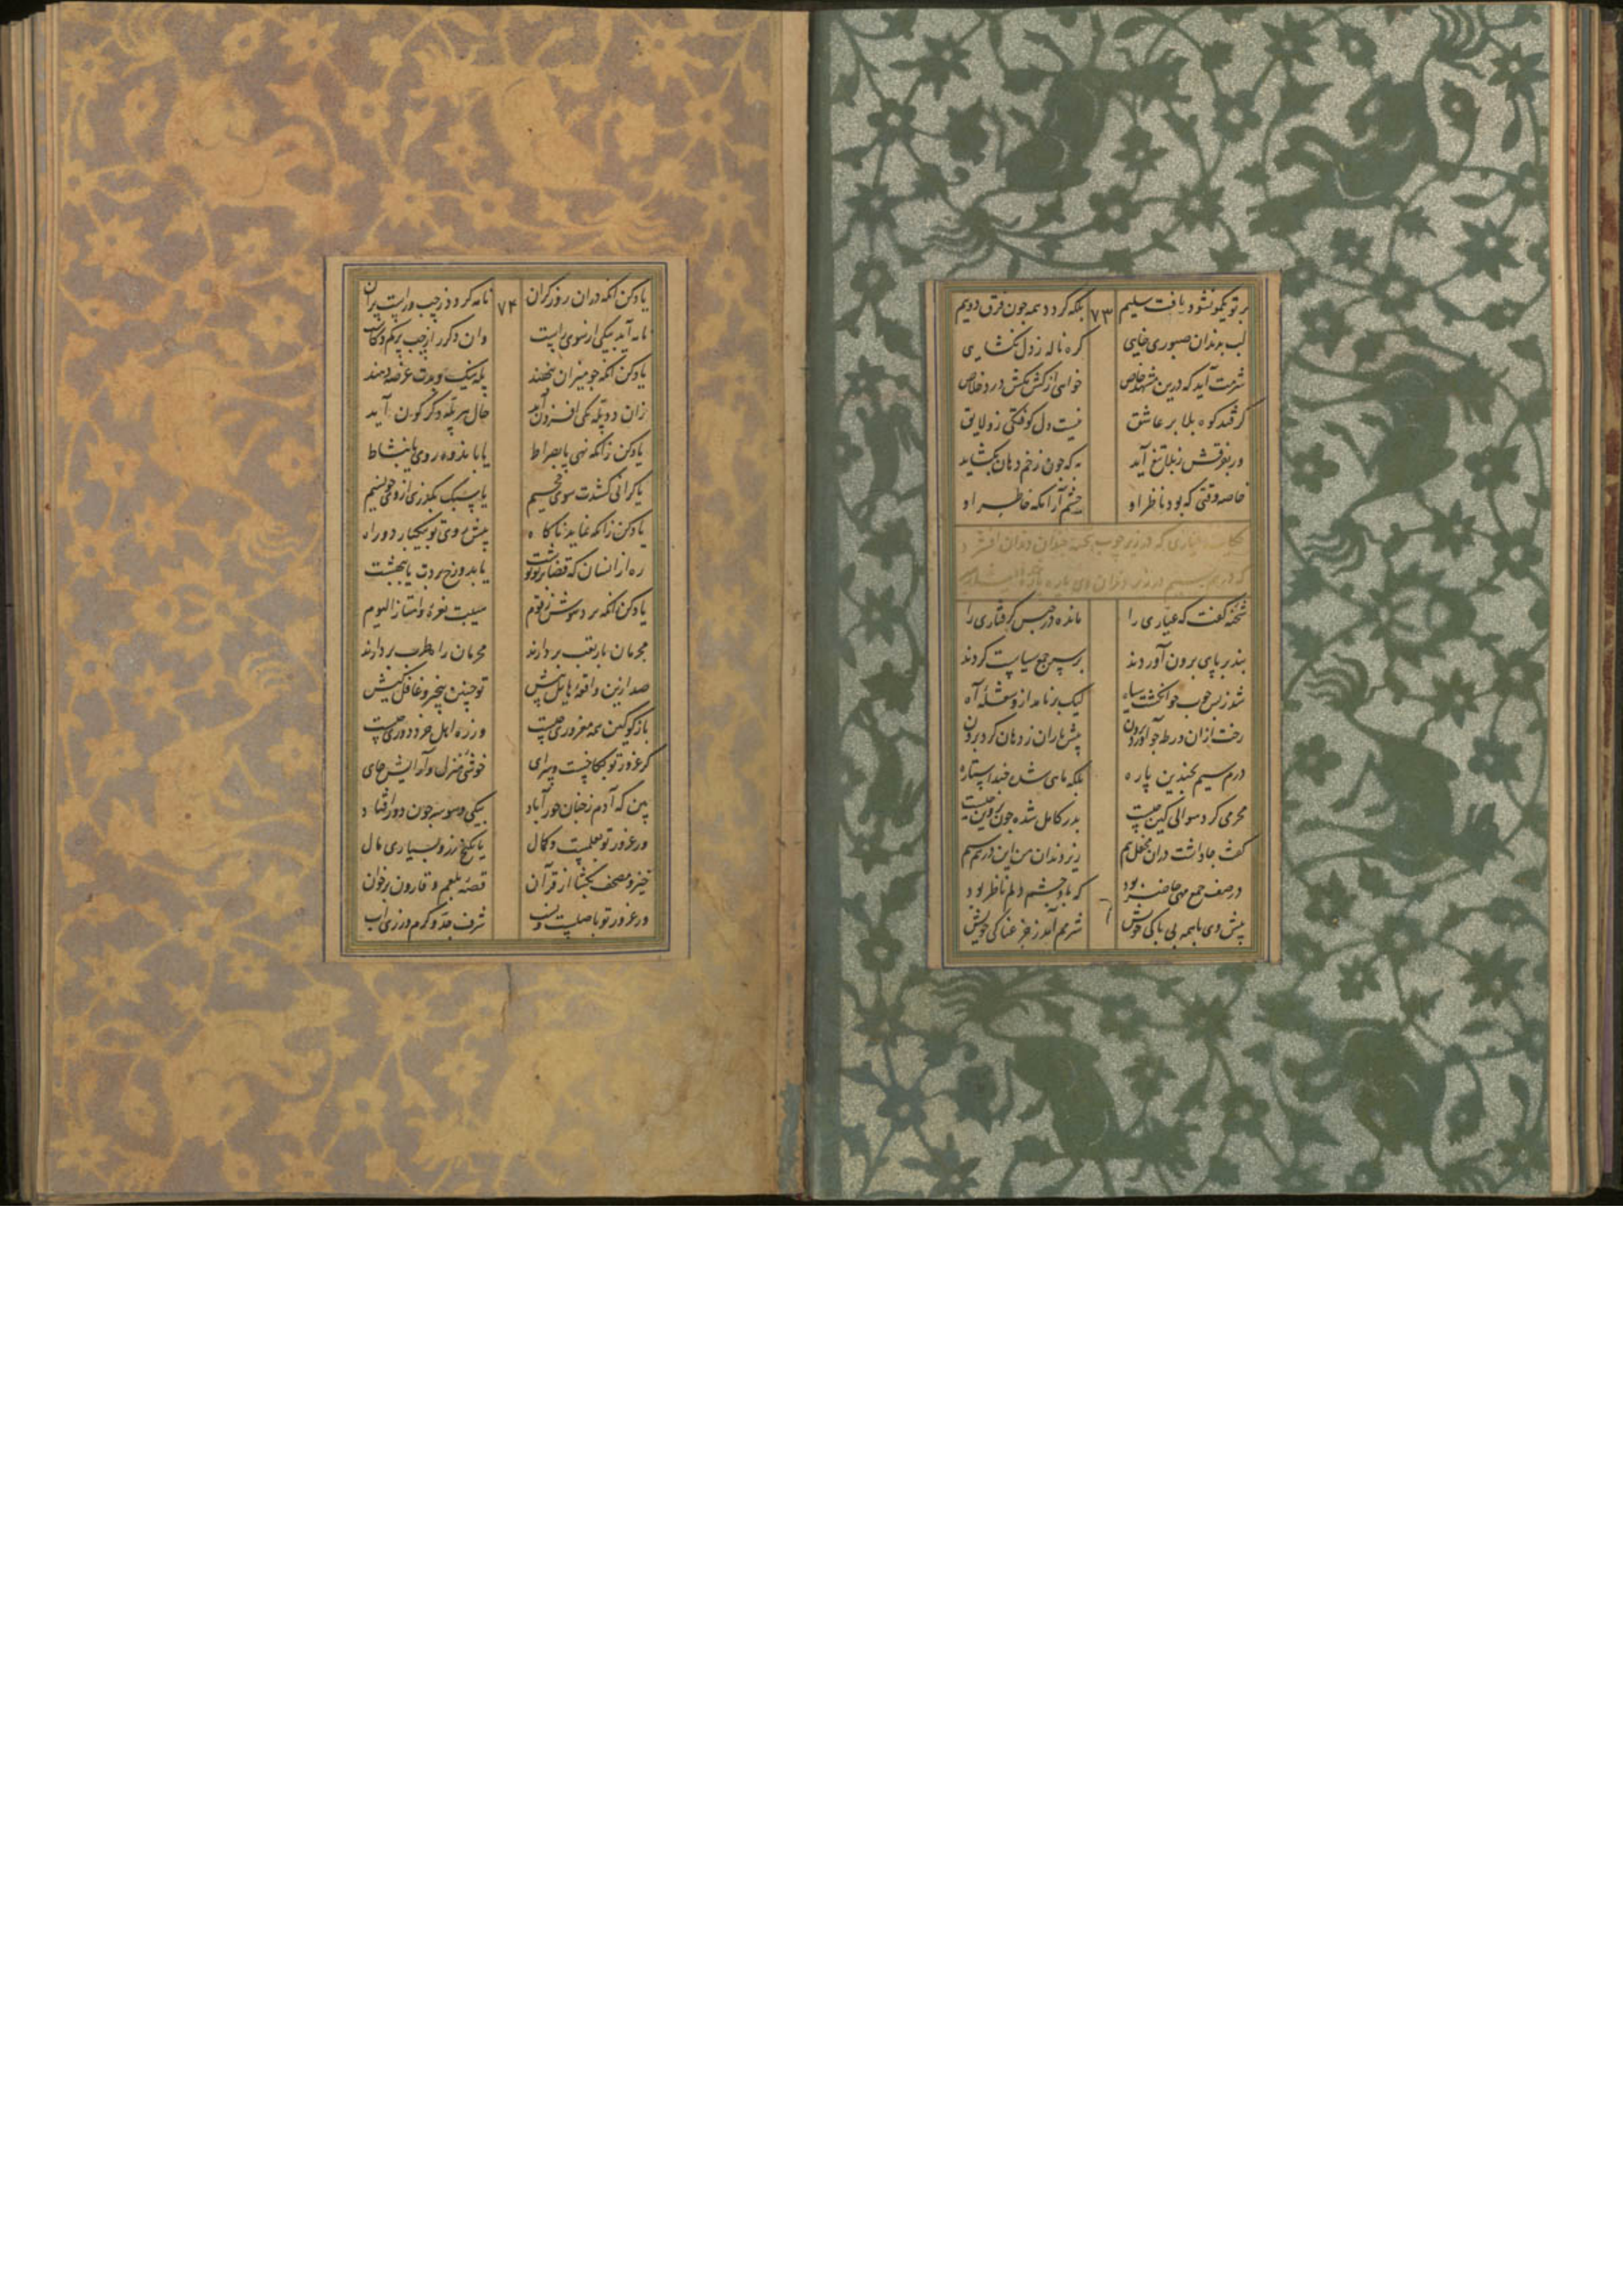 بر تو یکمو نشود یافت سلیم ۷۳ بلکه کردد همه چون فرق دو نیم
لب بدندان صبوری خایی کره ناله ز دل نکشایی
شرمت آید که درین مشهد خاص خواهی از کش مکش درد خلاص
کر فتد کوه بلا بر عاشق نیست دل کوفتکی زو لایق
ور بفرقش ز بلا تیغ آید به که چون زخم دهان نکشاید
خاصه وقتی که بود ناظر او چشم آن انکه خاطر او
حکایت عیاری که در زیر چوب شحنه دندان بر دندان افشرد
که درم سیم در زیر دندان وی پاره پاره
شحنه کفت که عیاری را مانده در حبس کرفتاری را
بند بر پای برون آوردند بر سر جمع سیاست کردند
شد ز بس چوب چو انکشت سیاه لیک بر نامد ازو شعله آه
رخت ازان ورطه چو آورد برون پیش یاران ز دهان کرد برون
درم سیم بچندین پاره بلکه ماهی شده چند استاره
محرمی کرد سوالی کین چیست بدر کامل شده چون پروین چیست
کفت جا داشت دران محفل بیم زیر دندان من این درهم سیم
در صف جمع مهی حاضر بود که بدو چشم دلم ناظر بود
پیش وی با همه بی باکی خویش شرمم آمد ز جزعناکی خویش
یاد کن انکه دران روز کران ۷۴ نامه کردد ز چپ و راست پران
نامه آید بیکی از سوی راست وان دکر را ز چپ بی کم و کاست
یاد کن انکه چو میزان بنهند پله نیک و بدت عرضه دهند
زان دو پله یکی افزون آید حال هر پله دکر کون آید
یاد کن زانکه نهی پا بصراط یا بانده روی یا بنشاط
یا کرانی کشدت سوی جحیم یا سبک بکذری از وی چو نسیم
یاد کن زانکه نماید ناکاه پیش روی تو بیکبار دو راه
ره ازانسان که قضا بر تو نوشت یا بدوزخ بردت یا ببهشت
یاد کن انکه برد هوش ز قوم هیبت نعره وامتاز الیوم
مجرمان بار تعب بردارند محرمان راه طرب بردارند
صد ازین واقعه هایل پیش تو چنین بیخبر و غافل کیش
باز کو کین همه مغروری چیست وز ره اهل خرد دوری چیست
کر غرور تو بکاخست و سرای خوشی منزل و آرایش جای
بین که آدم ز جنان حور آباد بیکی وسوسه چون دور افتاد
ور غرور تو بعلمست و کمال یا بکنج زر و بسیاری مال
خیز و مصحف بکشا از قرآن قصه بلعم و قارون برخوان
ور غرور تو باصلست و نسب شرف جد و کرم ورزی اب